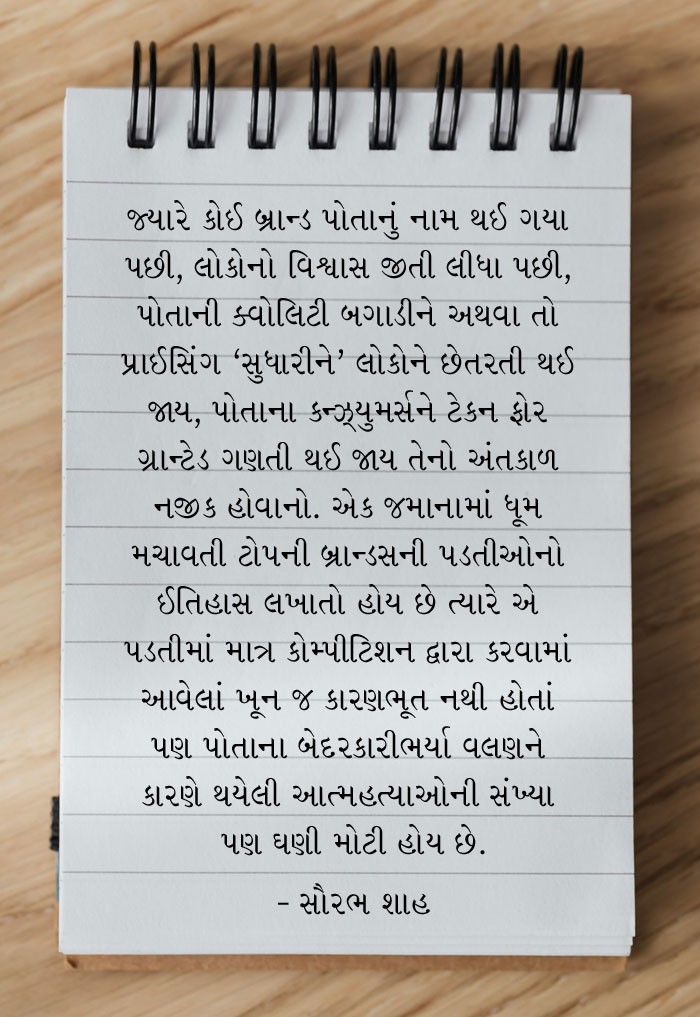 જ્યારે કોઈ બ્રાન્ડ પોતાનું નામ થઈ ગયા
પછી, લોકોનો વિશ્વાસ જીતી લીધા પછી,
પોતાની ક્વોલિટી બગાડીને અથવા તો
પ્રાઈસિંગ ‘સુધારીને’ લોકોને છેતરતી થઈ
જાય, પોતાના કન્ઝ્યુમર્સને ટેકન ફોર
ગ્રાન્ટેડ ગણતી થઈ જાય તેનો અંતકાળ
નજીક હોવાનો. એક જમાનામાં ધૂમ
મચાવતી ટોપની બ્રાન્ડસની પડતીઓનો
ઈતિહાસ લખાતો હોય છે ત્યારે એ
પડતીમાં માત્ર કોમ્પીટિશન દ્વારા કરવામાં
આવેલાં ખૂન જ કારણભૂત નથી હોતાં
પણ પોતાના બેદરકારીભર્યા વલણને
કારણે થયેલી આત્મહત્યાઓની સંખ્યા
પણ ઘણી મોટી હોય છે.
- સૌરભ શાહ